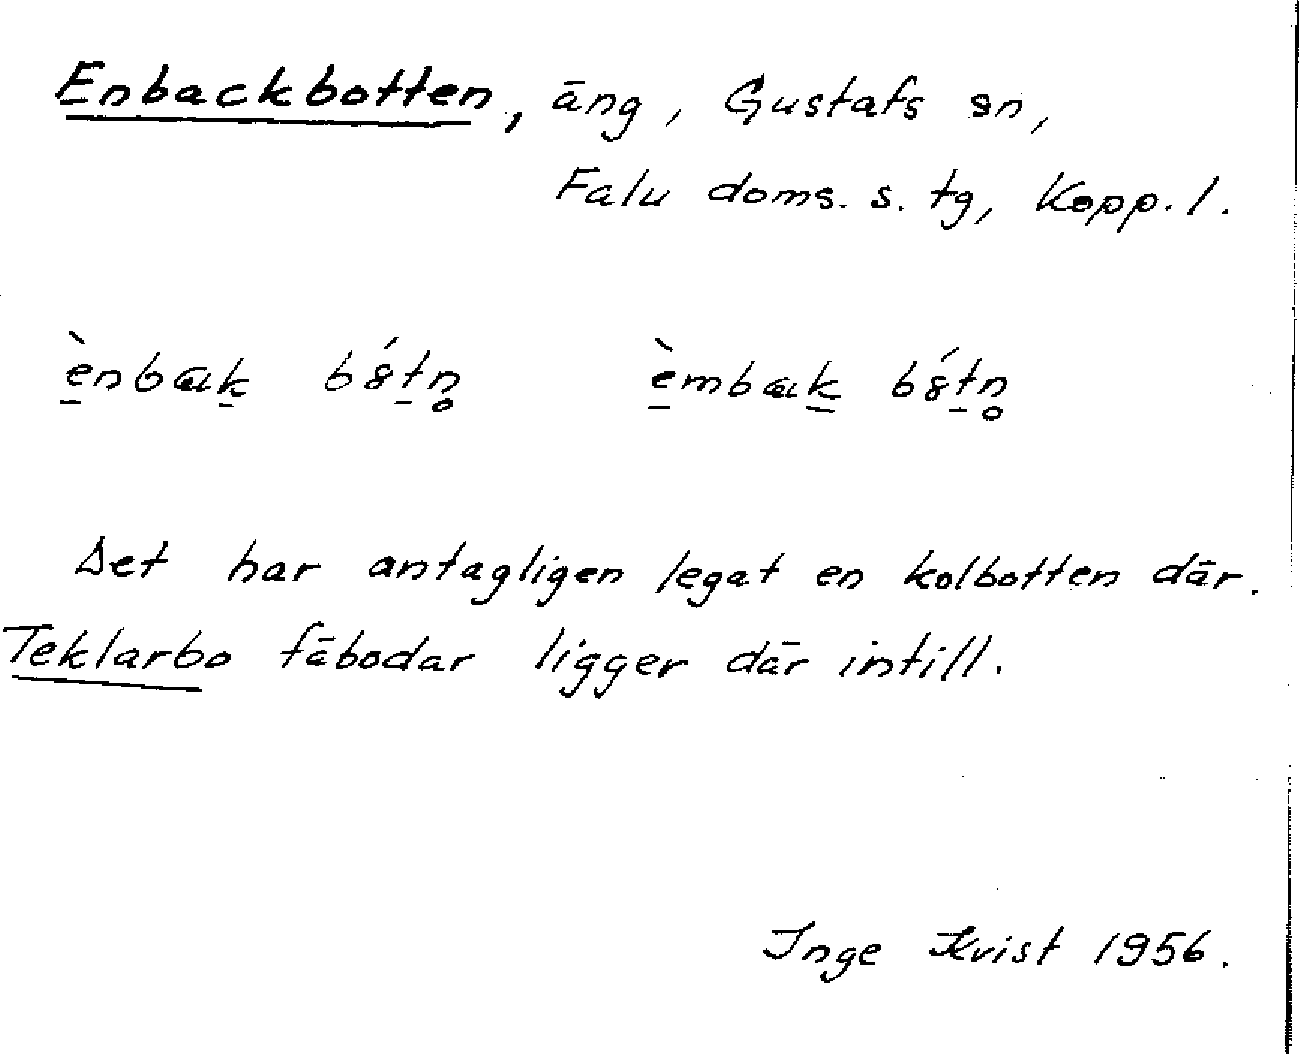 Enbackbotten, äng, Gustafs sn,
Falu doms. s. tg, Kopp. l.
Det har antagligen legat en kolbotten där.
Teklarbo fäbodar ligger där intill.
Inge Kvist 1956.